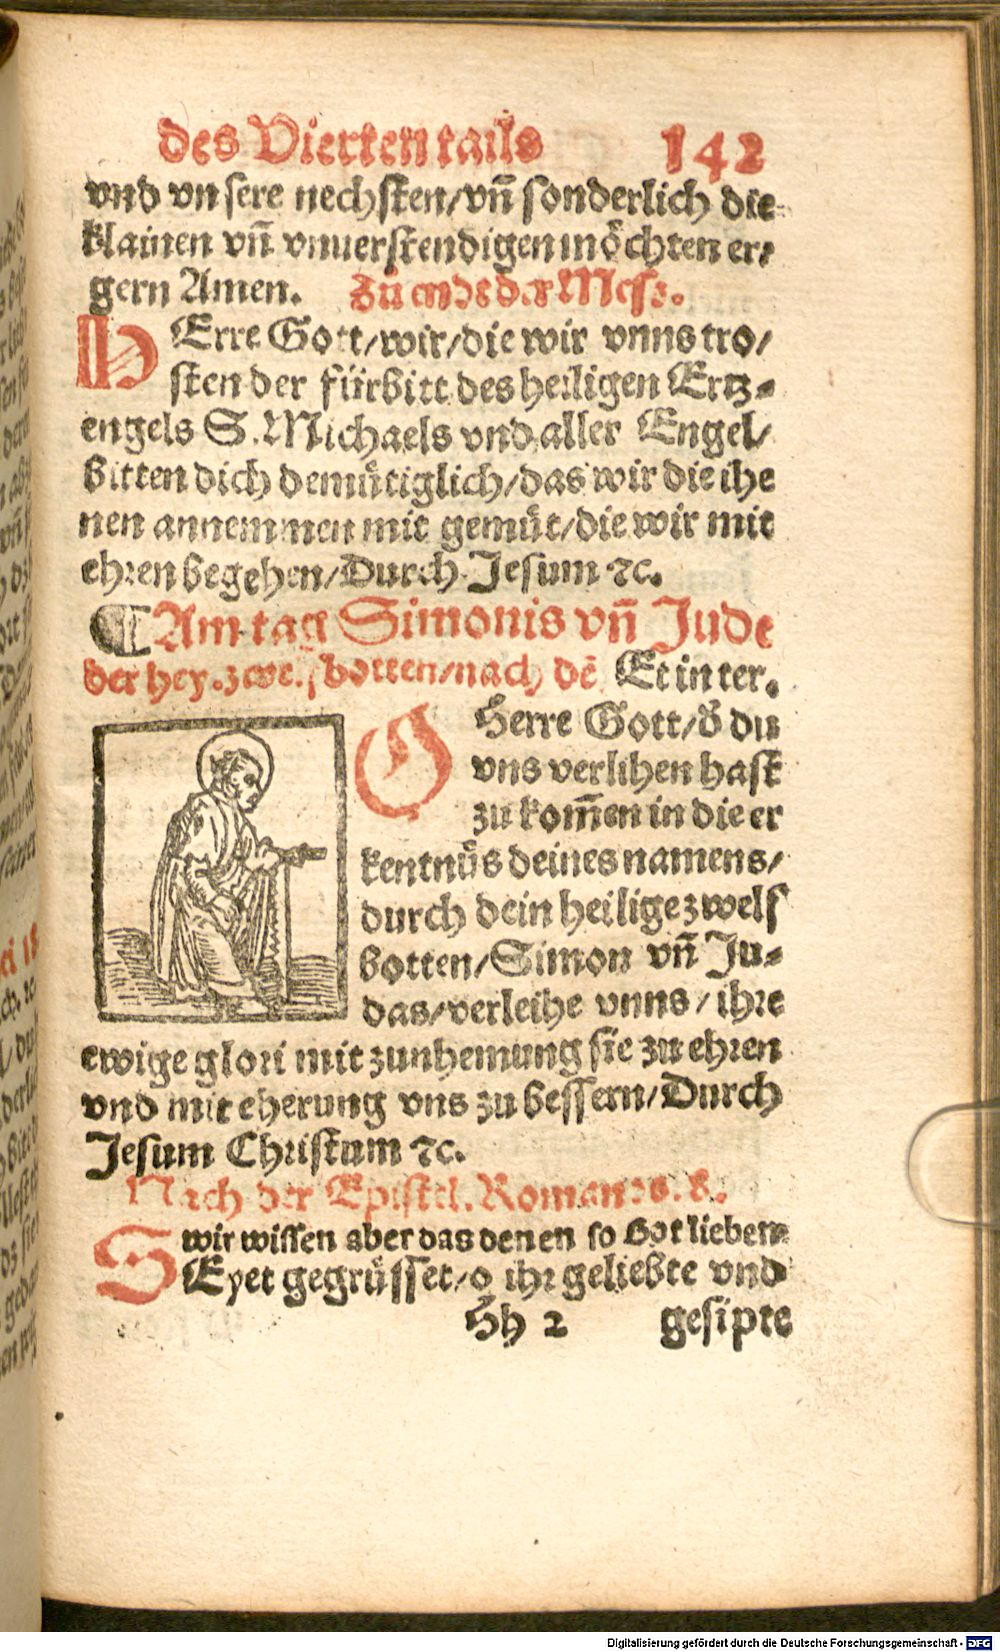 des Vierten tails 142
vnd vnsere nechsten/vñ sonderlich die
klainen vñ vnuerstendigen möchten er⸗
gern Amen. Zů ende der Mess.
HErre Gott/wir/die wir vnns tro/
sten der fürbitt des heiligen Ertz⸗
engels S. Michaels vnd aller Engel/
bitten dich demütiglich/das wir die ihe
nen annemmen mit gemüt/die wir mit
ehren begehen/Durch Jesum ꝛc.
¶ Am tag Simonis vñ Jude
der hey. zwe.botten/nach dē Et in ter.
O Herre Gott/d̕ du
vns verlihen hast
zu kom̃en in die er
kentnüs deines namens/
durch dein heilige zwelf
botten/Simon vñ Ju⸗
das/verleihe vnns/ihre
ewige glori mit zunhemung sie zu ehren
vnd mit eherung vns zu bessern/Durch
Jesum Christum ꝛc.
Nach der Epistel. Romanos. 8.
wir wissen aber das denen so Got lieben
SEyet gegrüsset/o ihr geliebte vnd
Hh 2 gesipte
Digitalisierung gefördert durch die Deutsche Forschungsgemeinschaft - DFG